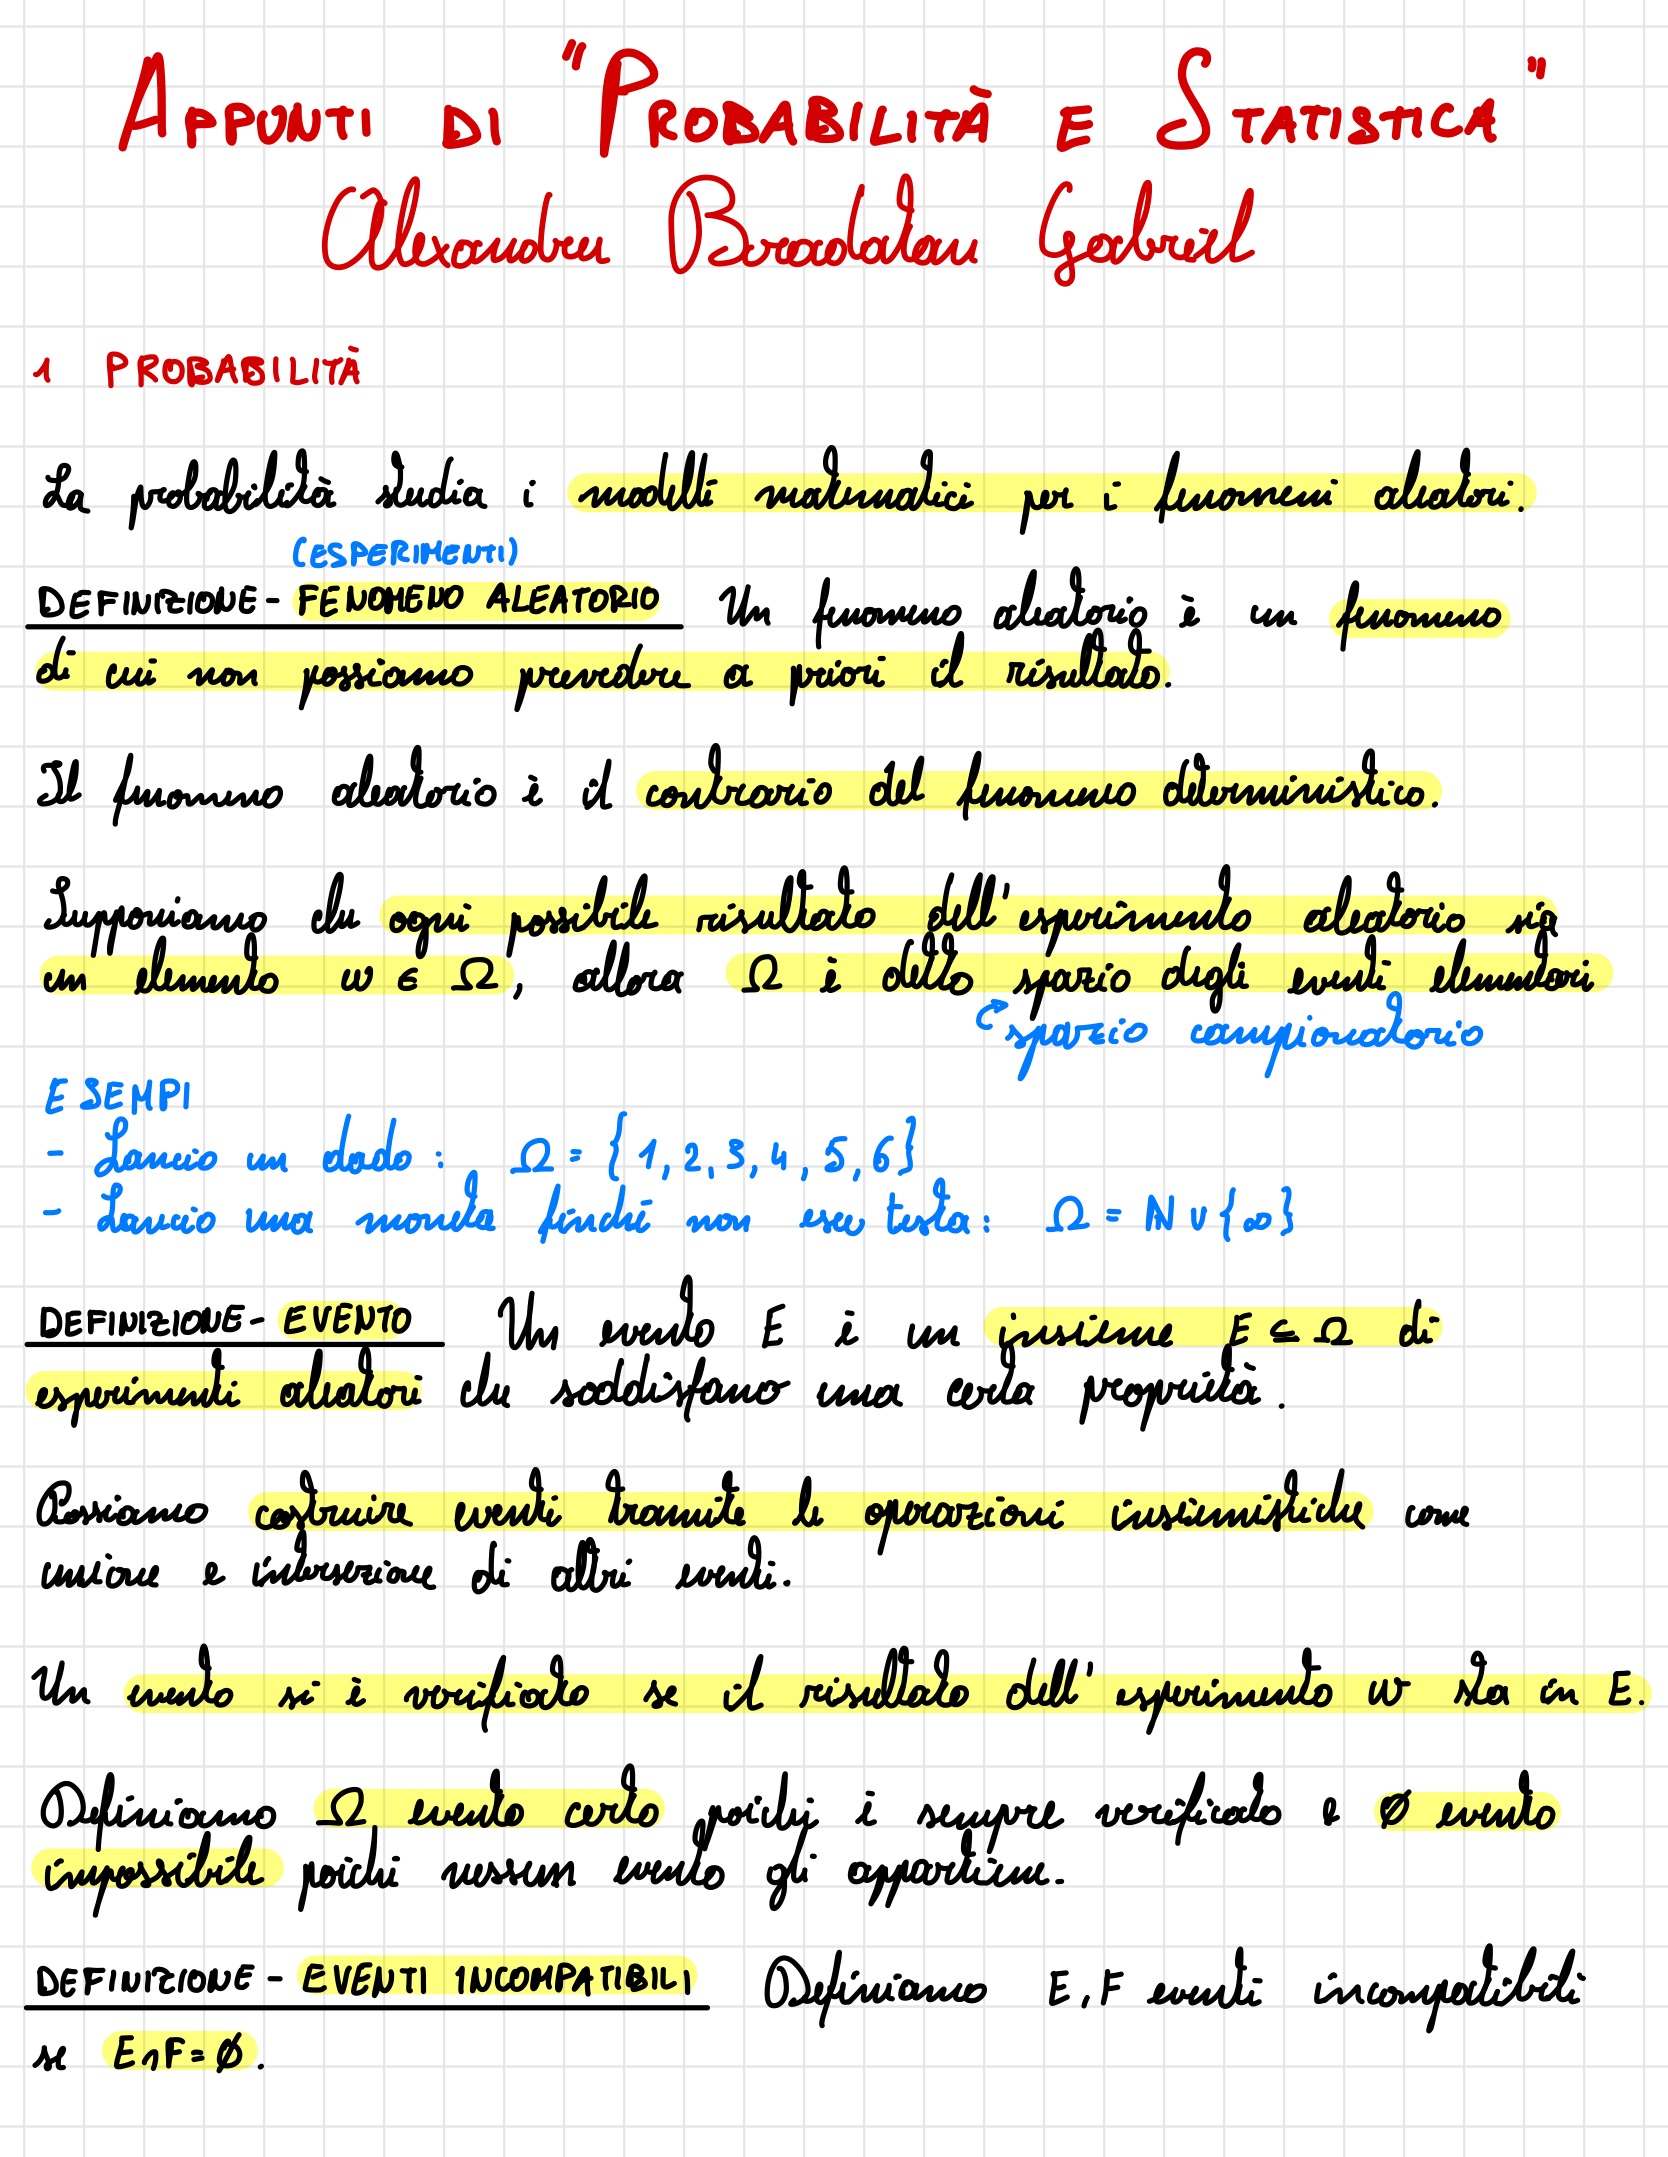 APPUNTI DI "PROBABILITÀ E STATISTICA"
Alexandru Bradatan Gabriel
1 PROBABILITÀ
La probabilità studia i modelli matematici per i fenomeni aleatori.
(ESPERIMENTI)
DEFINIZIONE - FENOMENO ALEATORIO Un fenomeno aleatorio è un fenomeno
di cui non possiamo prevedere a priori il risultato.
Il fenomeno aleatorio è il contrario del fenomeno deterministico.
Supponiamo che ogni possibile risultato dell'esperimento aleatorio sia
un elemento ω ∈ Ω, allora Ω è detto spazio degli eventi elementari
spazio campionatorio
ESEMPI
- Lancio un dado: Ω = {1, 2, 3, 4, 5, 6}
- Lancio una moneta finché non esce testa: Ω = ℕ ∪ {∞}
DEFINIZIONE - EVENTO Un evento E è un insieme E ⊆ Ω di
esperimenti aleatori che soddisfano una certa proprietà.
Possiamo costruire eventi tramite le operazioni insiemistiche come
unione e intersezione di altri eventi.
Un evento si è verificato se il risultato dell'esperimento ω sta in E.
Definiamo Ω evento certo poiché è sempre verificato e ∅ evento
impossibile poiché nessun evento gli appartiene.
DEFINIZIONE - EVENTI INCOMPATIBILI Definiamo E, F eventi incompatibili
se E∩F=∅.